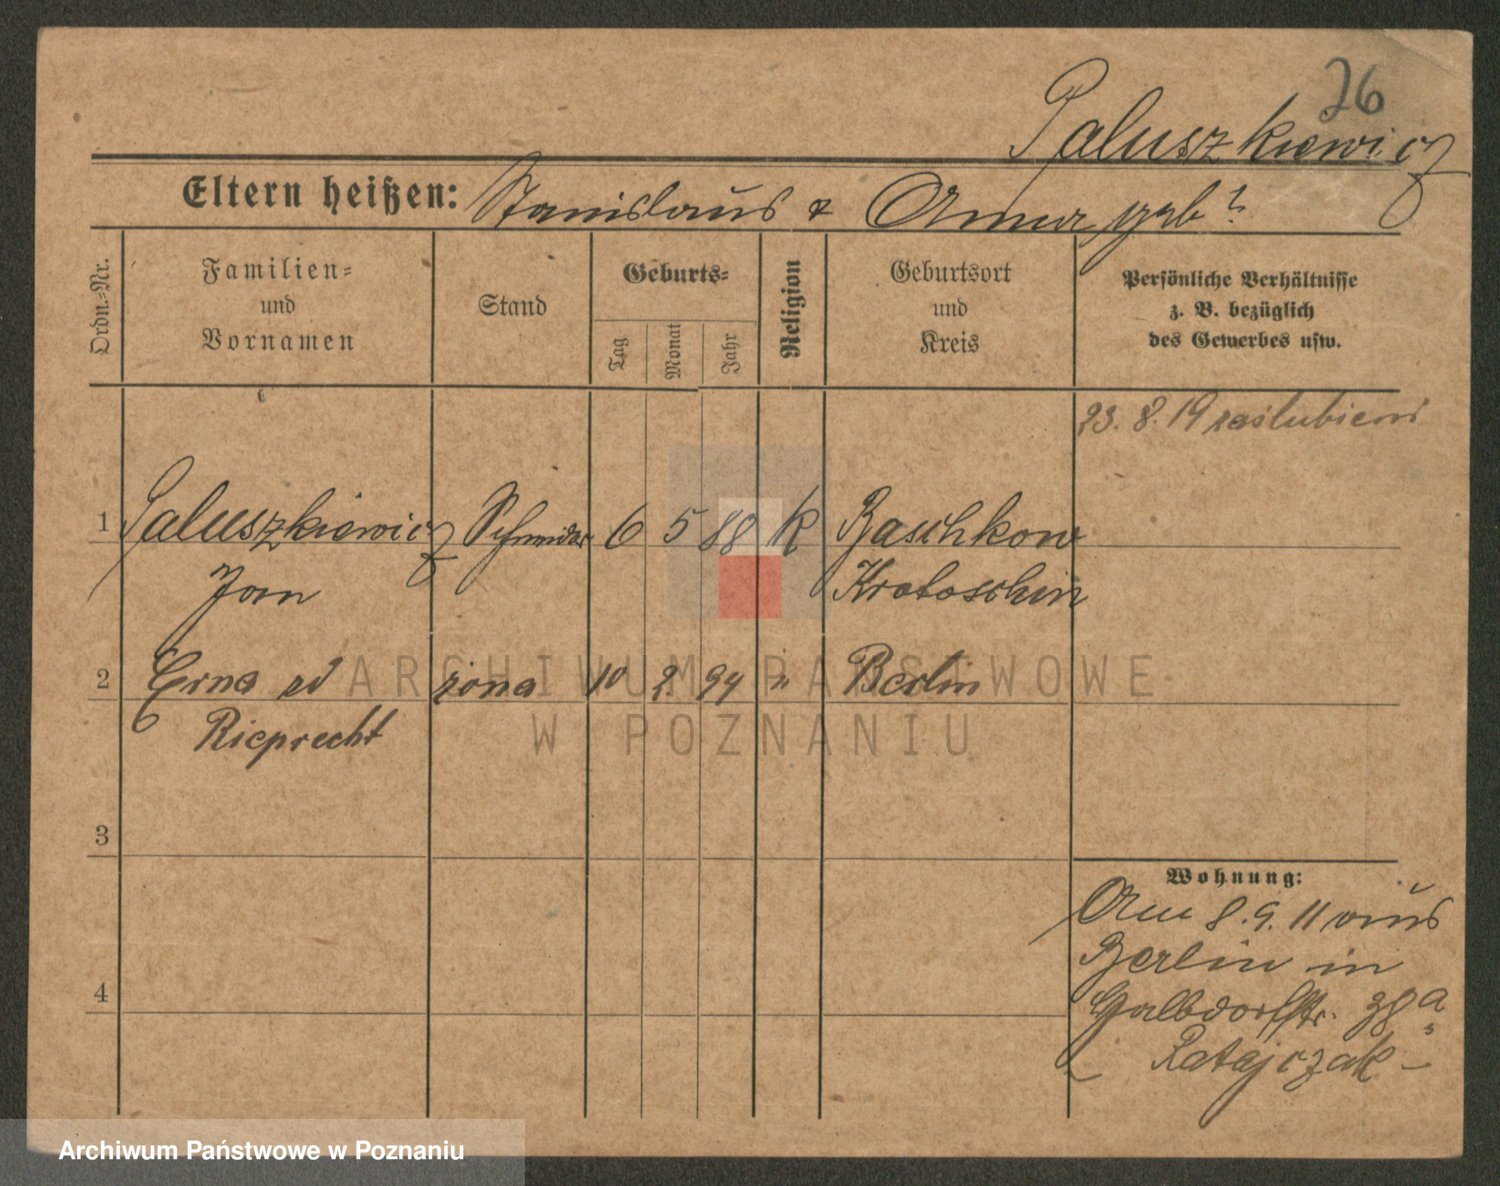 26
Paluszkiewicz
Eltern heißen: Stanislaus & Anna geb?
Ordn.-Nr.
Familien-
und
Vornamen
Stand
Geburts-
Tag
Monat
Jahr
Religion
Geburtsort
und
Kreis
Persönliche Verhältnisse
z. B. bezüglich
des Gewerbes usw.
23. 8. 19 zaślubieni
1 Paluszkiewicz Schneider 6 5 88 K Baschkow
Jan Krotoschin
2 Erna żona 10 2 94 " Berlin
Rieprecht
3
4
Wohnung:
Am 8.9.11 aus
Berlin in
38a
Ratajczak
ARCHIWUM PAŃSTWOWE
W POZNANIU
Archiwum Państwowe w Poznaniu